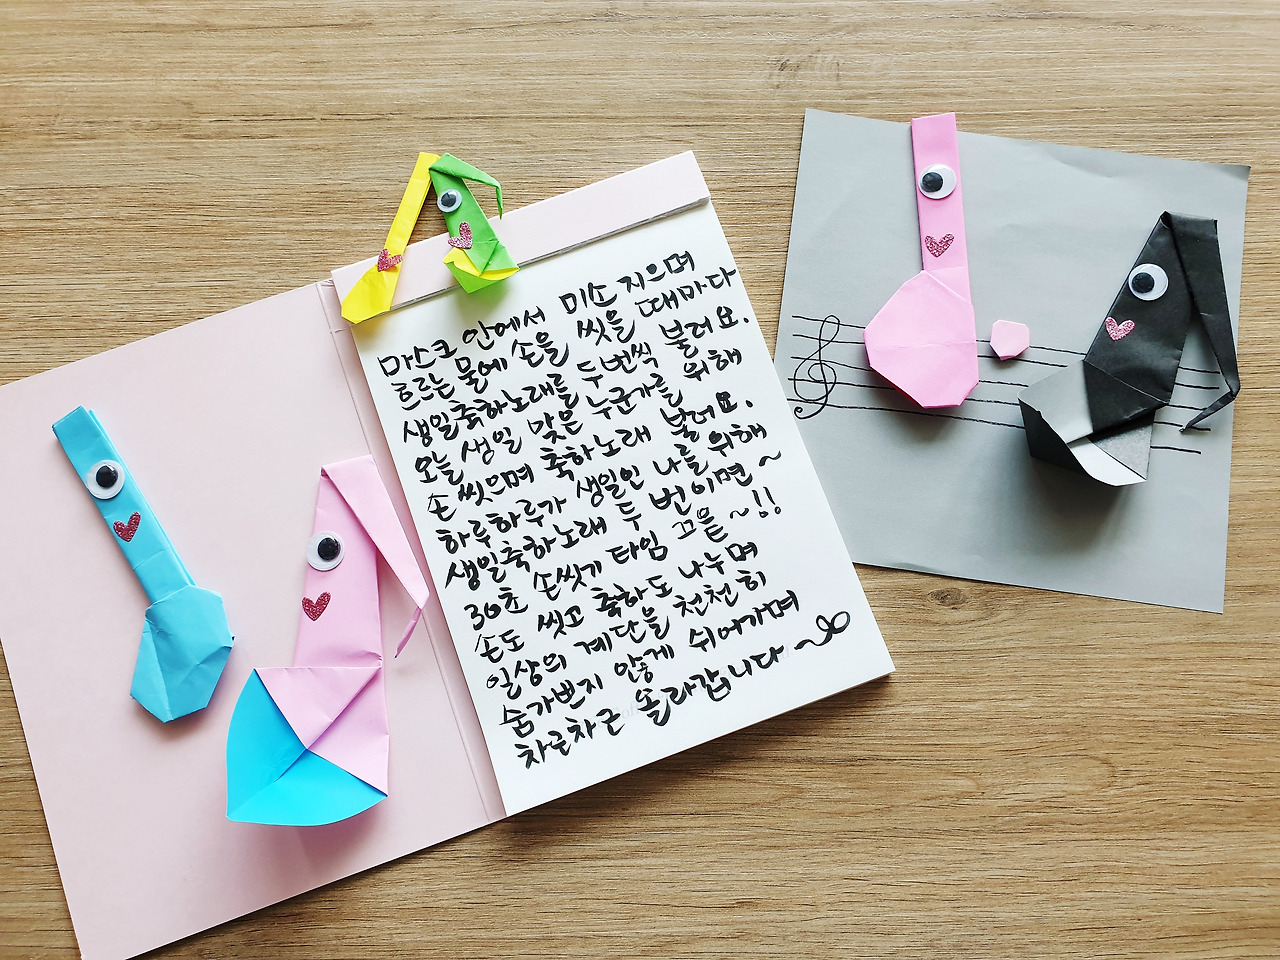 마스크 안에서 미소 지으며
흐르는 물에 손을 씻을 때마다
생일축하노래를 두번씩 불러요.
오늘 생일 맞은 누군가를 위해
손 씻으며 축하노래 불러요.
하루하루가 생일인 나를 위해
생일축하노래 두 번이면 ~
30초 손씻기 타임 끄읕~!!
손도 씻고 축하도 나누며
일상의 계단을 천천히
숨가쁘지 않게 쉬어가며
차근차근 올라갑니다~